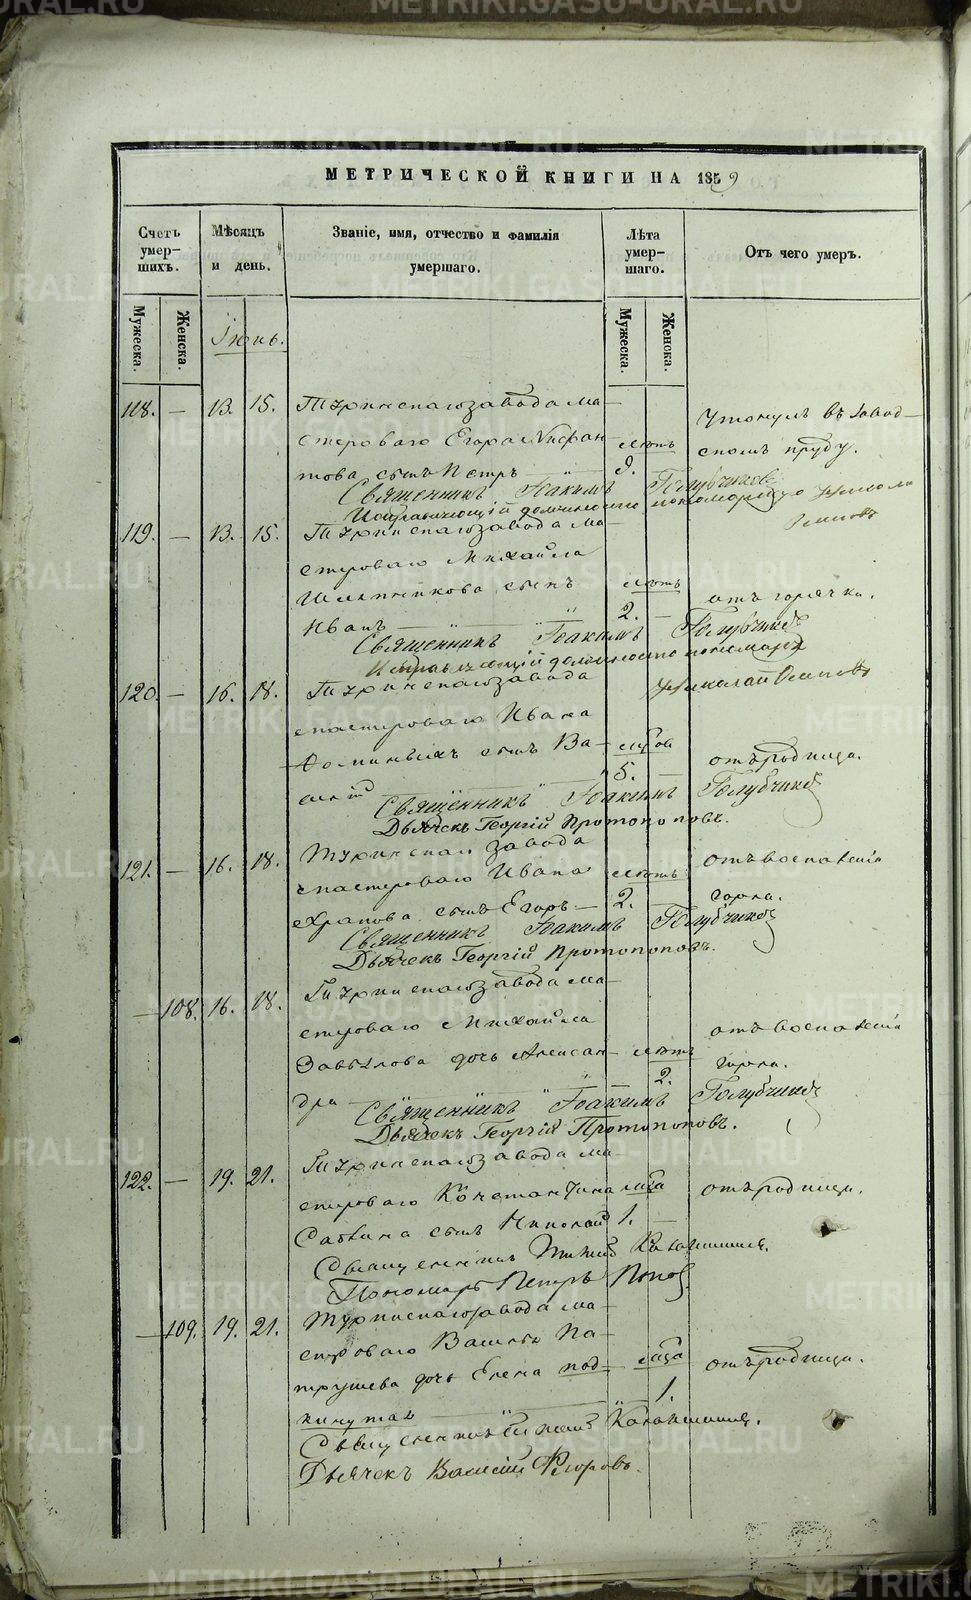 МЕТРИЧЕСКОЙ КНИГИ НА 1859
Счетъ умер-шихъ.
Мѣсяцъ и день.
Званіе, имя, отчество и фамилія умершаго.
Лѣта умер-шаго.
Отъ чего умеръ.
Мужеска.
Женска.
Мужеска.
Женска.
Іюнь.
118. — 13. 15. Туринскаго завода ма-
стероваго Егора лѣтъ
сынъ Петръ 9.
Утонулъ въ завод-
скомъ пруду.
Священникъ Іоакимъ Голубчиковъ
Исправляющій должность пономарскую Николай
Осиповъ
119. — 13. 15. Туринскаго завода ма-
стероваго Михайла
сынъ лѣтъ
Иванъ 2.
отъ горячки.
Священникъ Іоакимъ Голубчиковъ
Исправляющій должность пономаря
Николай Осиповъ
120. — 16. 18. Туринскаго завода
мастероваго Ивана
сынъ Ва-
силій 5.
отъ родимца.
Священникъ Іоакимъ Голубчиковъ
Дьячекъ Георгій Протопоповъ.
121. — 16. 18. Туринскаго завода
мастероваго Ивана лѣтъ
Храпова сынъ Егоръ — 2.
отъ воспаленія
горла.
Священникъ Іоакимъ Голубчиковъ
Дьячекъ Георгій Протопоповъ.
— 108. 16. 18. Туринскаго завода ма-
стероваго Михайла
Завьялова дочь Алексан- лѣтъ
дра 2.
отъ воспаленія
горла.
Священникъ Іоакимъ Голубчиковъ
Дьячекъ Георгій Протопоповъ.
122. — 19. 21. Туринскаго завода ма-
стероваго Константина
сынъ Николай 1.
отъ родимца.
Священникъ
Пономарь Петръ Поповъ
— 109. 19. 21. Туринскаго завода ма-
стероваго Василья Па-
трушева дочь Елена под-
кинутая 1.
отъ родимца.
Священникъ
Дьячекъ Василій Флоровъ.
METRIKI.GASO-URAL.RU